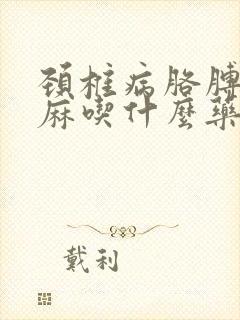 頚椎病胳膊
麻喫什麼藥
戴利